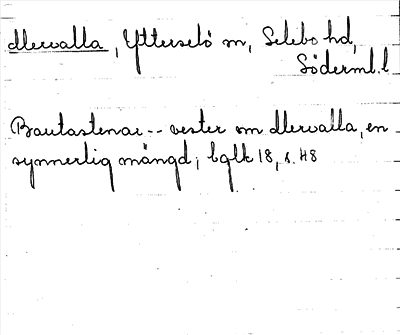 Mervalla, Ytterselö sn, Selebo hd,
Söderml. l
Bautastenar -- vester om Mervalla, en
synnerlig mängd; 18, s. 48